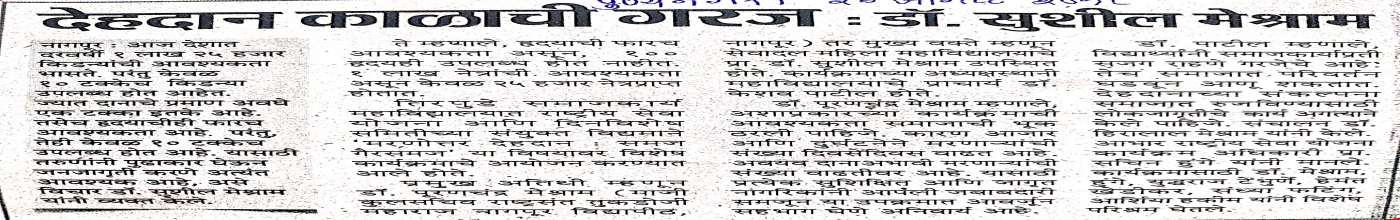 देहदान काळाची गरज : डॉ. सुशील मेश्राम
नागपूर : आज देशात
दरवर्षी १ लाख २५ हजार
किडन्यांची आवश्यकता
भासते. परंतु केवळ
१० टक्केच किडन्या
उपलब्ध होत आहेत.
ज्यात दानाचे प्रमाण अवघे
एक टक्का इतके आहे.
तसेच हृदयाचीही फारच
आवश्यकता आहे. परंतु,
तेही केवळ १० टक्केच
उपलब्ध होत आहे. यासाठी
तरुणांनी पुढाकार घेऊन
जनजागृती करणे अत्यंत
आवश्यक आहे, असे
विचार डॉ. सुशील मेश्राम
यांनी व्यक्त केले.
ते म्हणाले, हृदयाची फारच
आवश्यकता असून, १००
हृदयही उपलब्ध होत नाहीत.
१ लाख नेत्रांची आवश्यकता
असून केवळ २५ हजार नेत्रप्राप्त
होतात.
तिरपुडे समाजकार्य
महाविद्यालयात राष्ट्रीय सेवा
योजना आणि दिनविशेष
समितीच्या संयुक्त विद्यमाने
'मरणोत्तर देहदान : समज
गैरसमज' या विषयावर विशेष
कार्यक्रमाचे आयोजन करण्यात
आले होते.
प्रमुख अतिथी म्हणून
डॉ. पूरणचंद्र मेश्राम (माजी
कुलसचिव राष्ट्रसंत तुकडोजी
महाराज नागपूर विद्यापीठ,
नागपूर) तर मुख्य वक्ते म्हणून
सेवादल महिला महाविद्यालयाचे
प्रा. डॉ. सुशील मेश्राम उपस्थित
होते. कार्यक्रमाच्या अध्यक्षस्थानी
महाविद्यालयाचे प्राचार्य डॉ.
केशव पाटील होते.
डॉ. पूरणचंद्र मेश्राम म्हणाले,
अशाप्रकारच्या कार्यक्रमाची
आवश्यकता समाजाची भूक
ठरली आहे. कारण आजार
आणि दुर्घटनेने मरणाऱ्यांच
संख्या दिवसेंदिवस वाढत आहे.
अवयव दानाअभावी मरणाऱ्यांची
संख्या वाढतीवर आहे. यासाठी
प्रत्येक सुशिक्षित आणि जागृत
नागरिकांनी आपली जवाबदारी
समजून या उपक्रमात आवर्जून
सहभाग घेणे अनिवार्य आहे.
डॉ. पाटील म्हणाले,
विद्यार्थ्यांनी समाजकार्याप्रती
सजग राहणे गरजेचे आहे.
तेच समाजात परिवर्तन
घडवून आणू शकतात.
देहदानाच्या संकल्पना
समाजात रुजविण्यासाठी
लोकजागृतीचे कार्य अगत्याने
केले पाहिजे. संचालन डॉ.
हिरालाल मेश्राम यांनी केले.
आभार राष्ट्रीय सेवा योजना
कार्यक्रम अधिकारी प्रा.
सचिन हुंगे यांनी मानले.
कार्यक्रमासाठी डॉ. मेश्राम,
हुंगे, युवराज टेंभुर्णे, हेमंत
आशिया हकीम यांनी विशेष
परिश्रम घेतले.